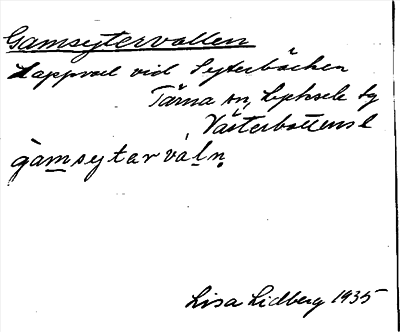 Gamsytervallen
Lappvel vid Syterbäcken
Tärna sn, Lycksele lg
Västerbottens l
gàmsytərválṇ
Lisa Lidberg 1935